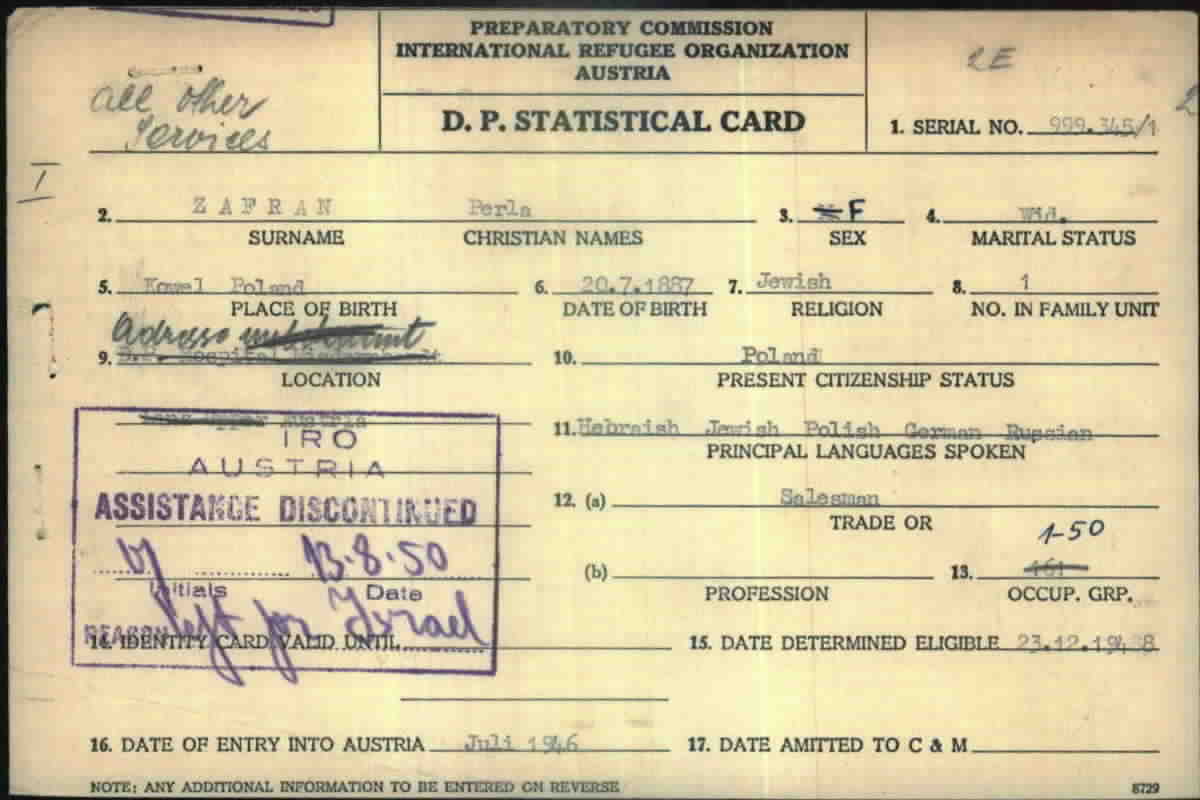 PREPARATORY COMMISSION
INTERNATIONAL REFUGEE ORGANIZATION
AUSTRIA
2E
all other
Services
D. P. STATISTICAL CARD
1. SERIAL NO. 999.345/1
I
2. ZAFRAN Perla 3. F 4. Wid.
SURNAME CHRISTIAN NAMES SEX MARITAL STATUS
5. Kowel Poland 6. 20.7.1887 7. Jewish 8. 1
PLACE OF BIRTH DATE OF BIRTH RELIGION NO. IN FAMILY UNIT
Adresse
9. Hospital 10. Poland
LOCATION PRESENT CITIZENSHIP STATUS
Upper Austria 11. Hebraish Jewish Polish German Russian
PRINCIPAL LANGUAGES SPOKEN
IRO
AUSTRIA
ASSISTANCE DISCONTINUED
12. (a) Salesman
TRADE OR
1-50
13.8.50
Initials Date
(b) 13. 161
PROFESSION OCCUP. GRP.
REASON left for Israel
14. IDENTITY CARD VALID UNTIL 15. DATE DETERMINED ELIGIBLE 23.12.1948
16. DATE OF ENTRY INTO AUSTRIA Juli 1946 17. DATE AMITTED TO C & M
NOTE: ANY ADDITIONAL INFORMATION TO BE ENTERED ON REVERSE 8729